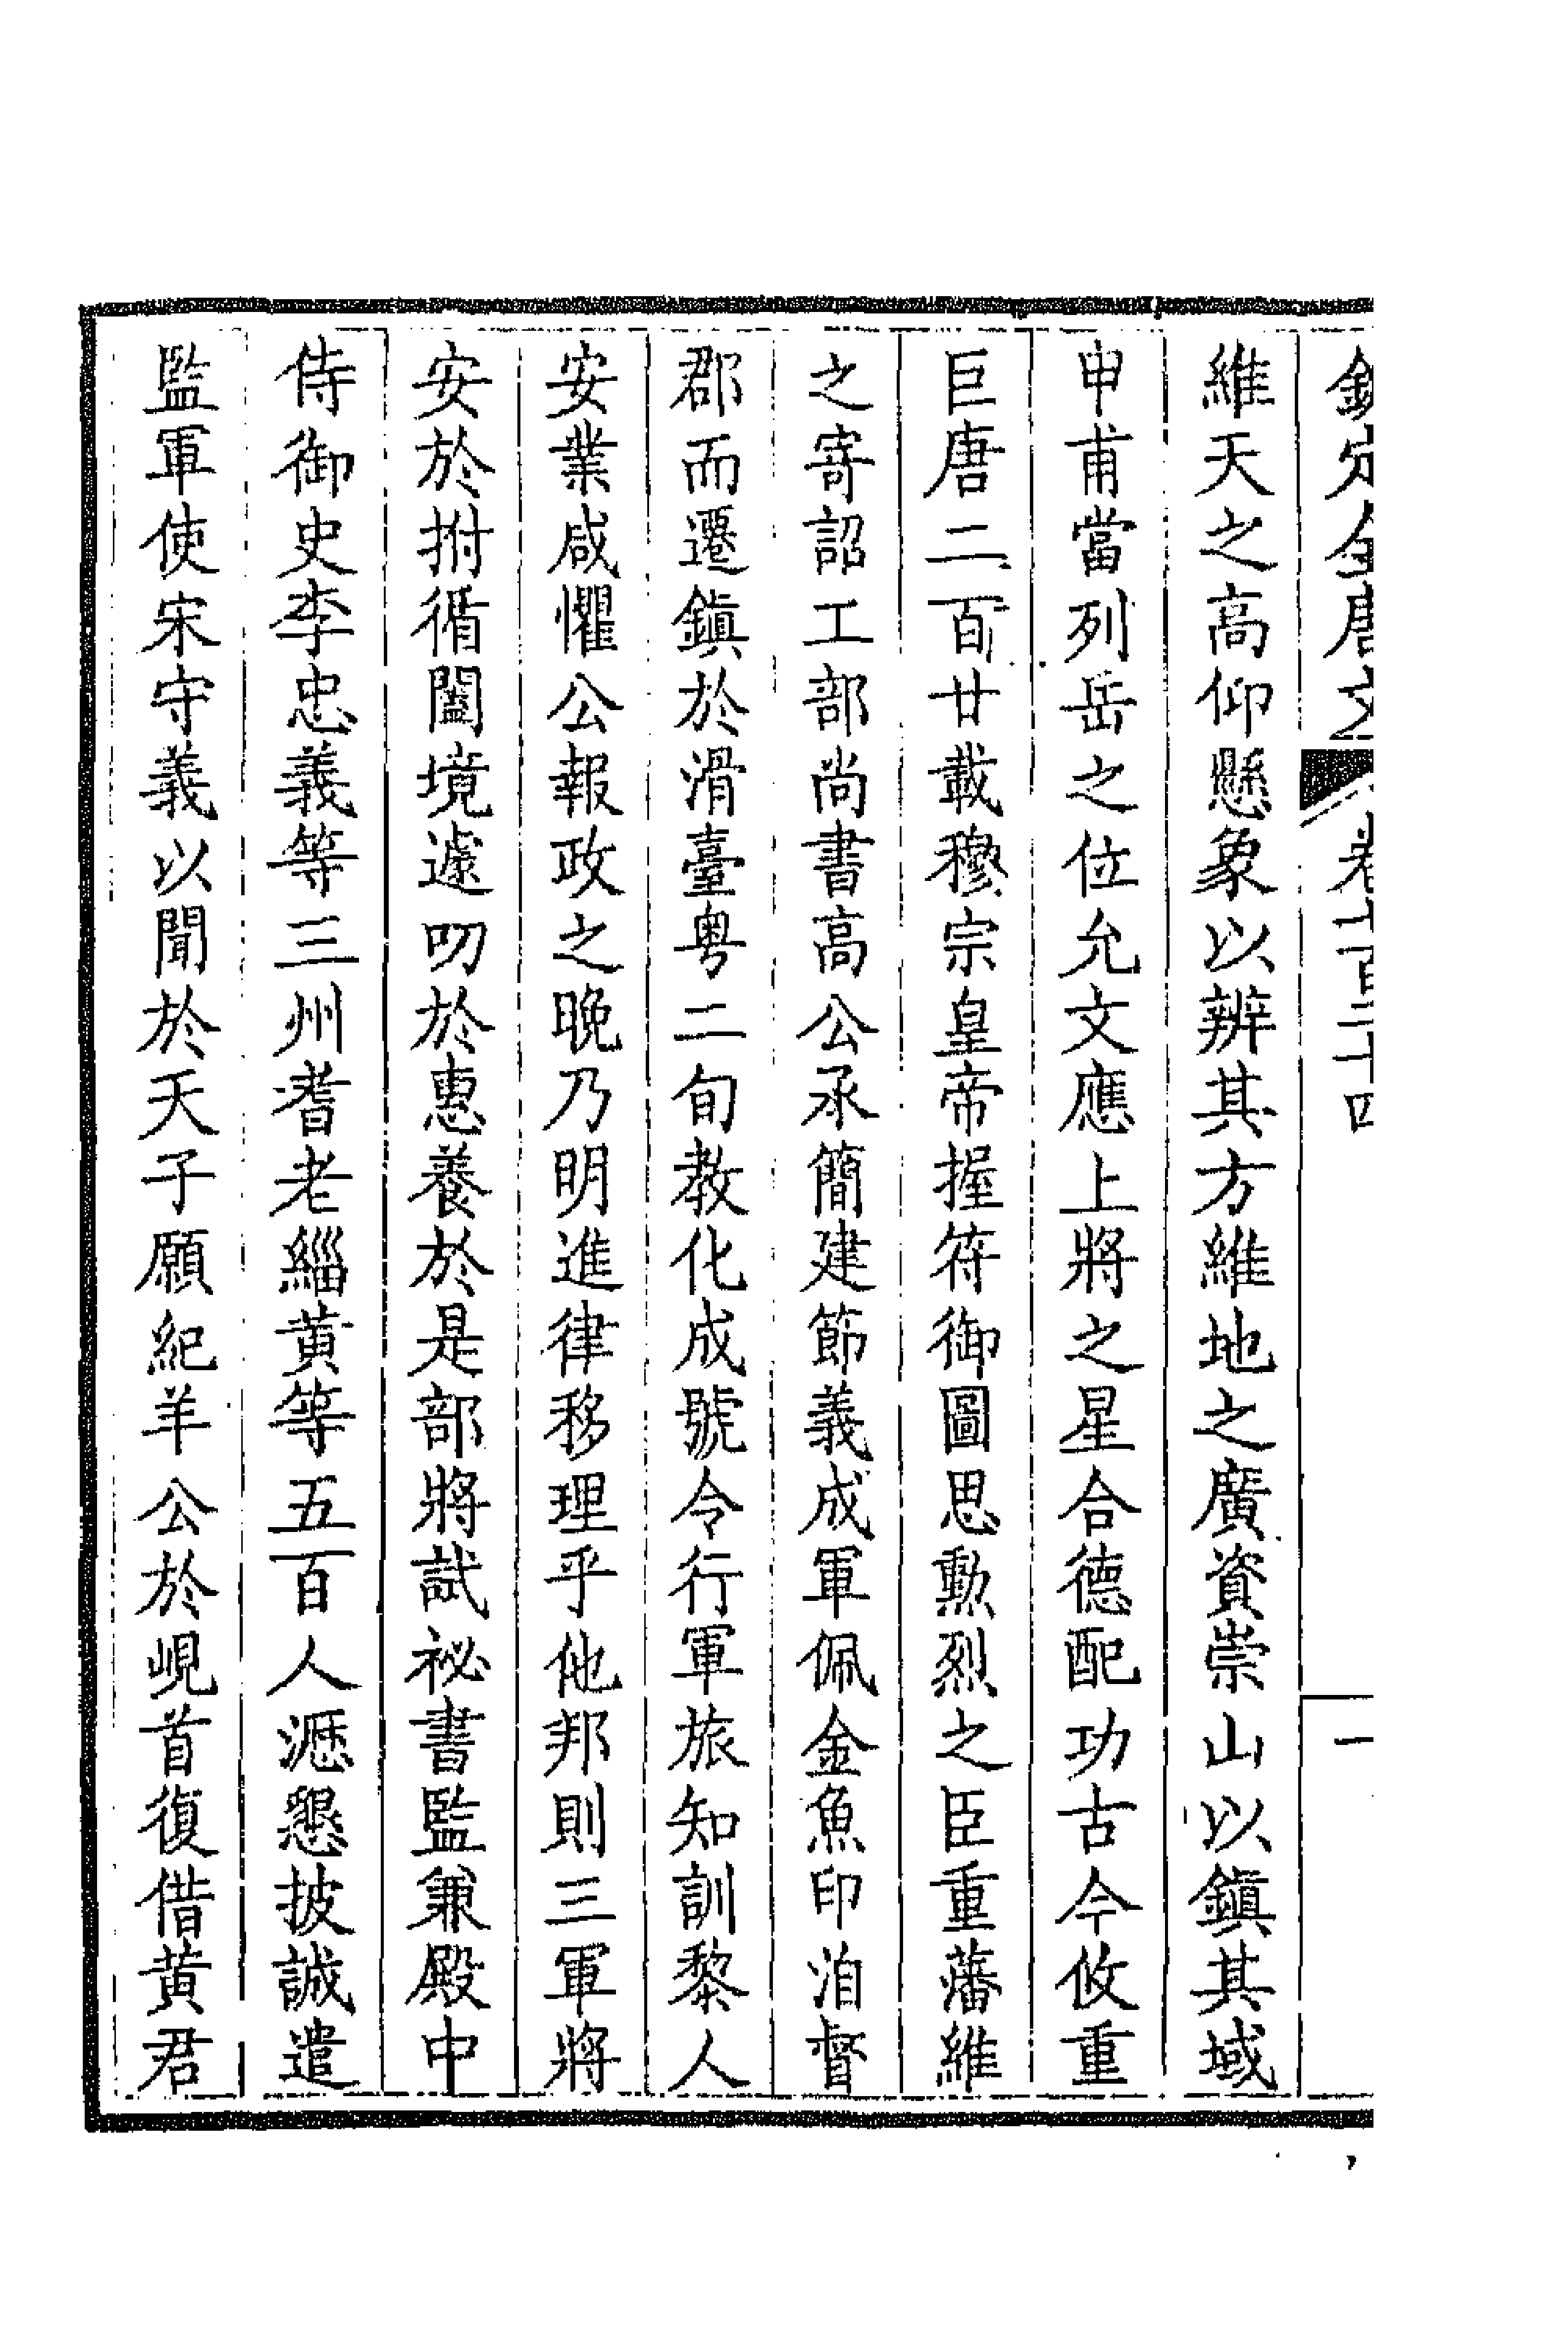 欽定全唐文 卷七百二十四 一
維天之高仰懸象以辨其方維地之廣資崇山以鎮其域
申甫當列岳之位允文應上將之星合德配功古今攸重
巨唐二百廿載穆宗皇帝握符御圖思勲烈之臣重藩維
之寄詔工部尚書高公承簡建節義成軍佩金魚印洎督
郡而遷鎮於滑臺粵二旬教化成號令行軍旅知訓黎人
安業咸懼公報政之晚乃明進律移理乎他邦則三軍將
安於拊循闔境遽叨於惠養於是部將試祕書監兼殿中
侍御史李忠義等三州耆老緇黃等五百人瀝懇披誠遣
監軍使宋守義以聞於天子願紀羊公於峴首復借黃君